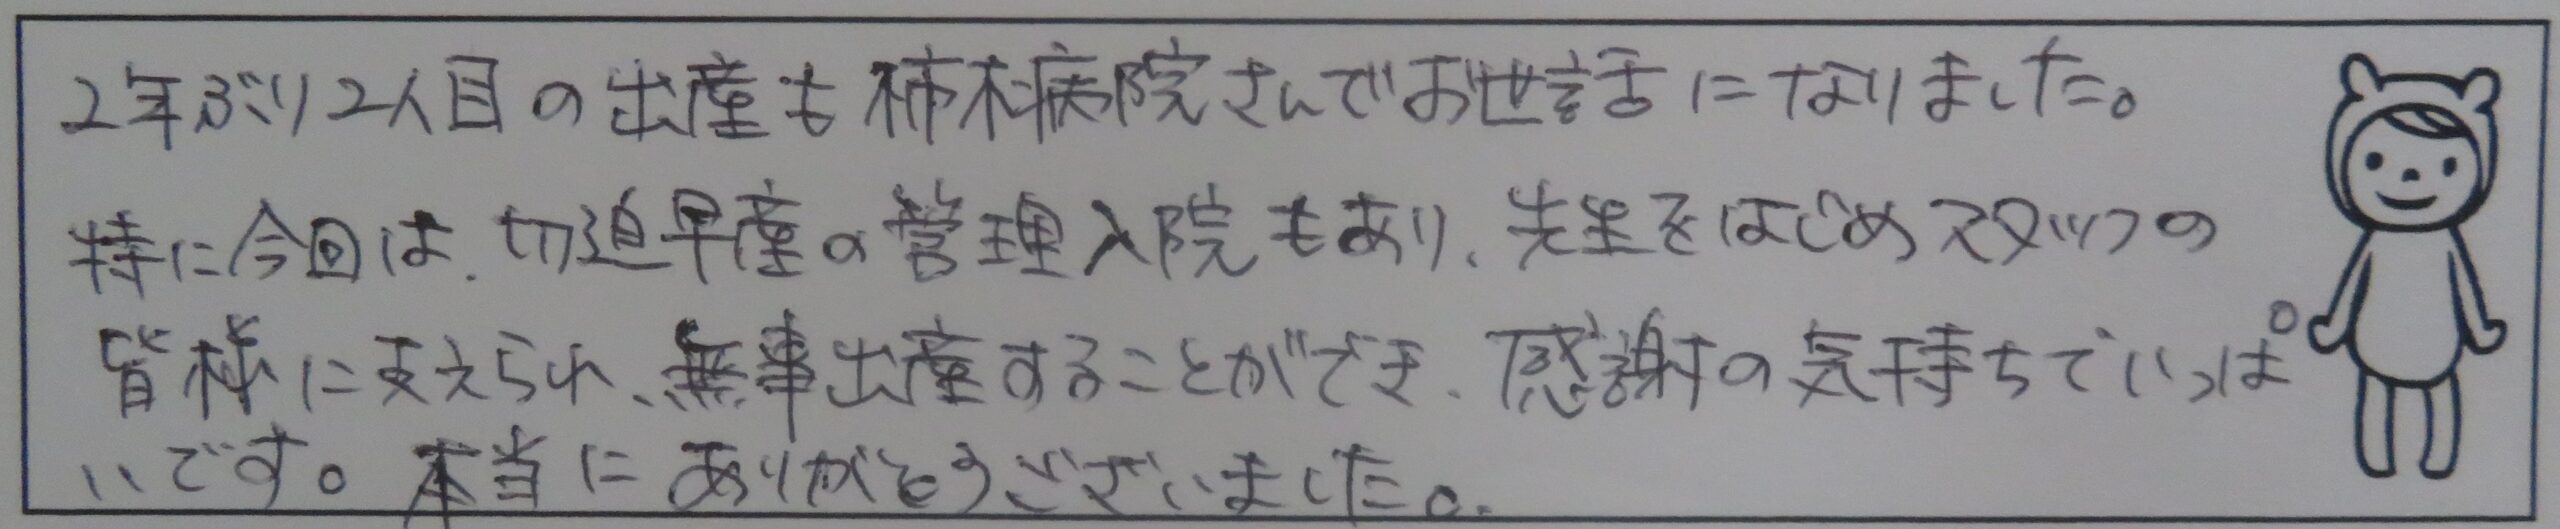 2年ぶり2人目の出産も柿木病院さんでお世話になりました。
特に今回は、切迫早産の管理入院もあり、先生をはじめスタッフの
皆様に支えられ、無事出産することができ、感謝の気持ちでいっぱ
いです。本当にありがとうございました。